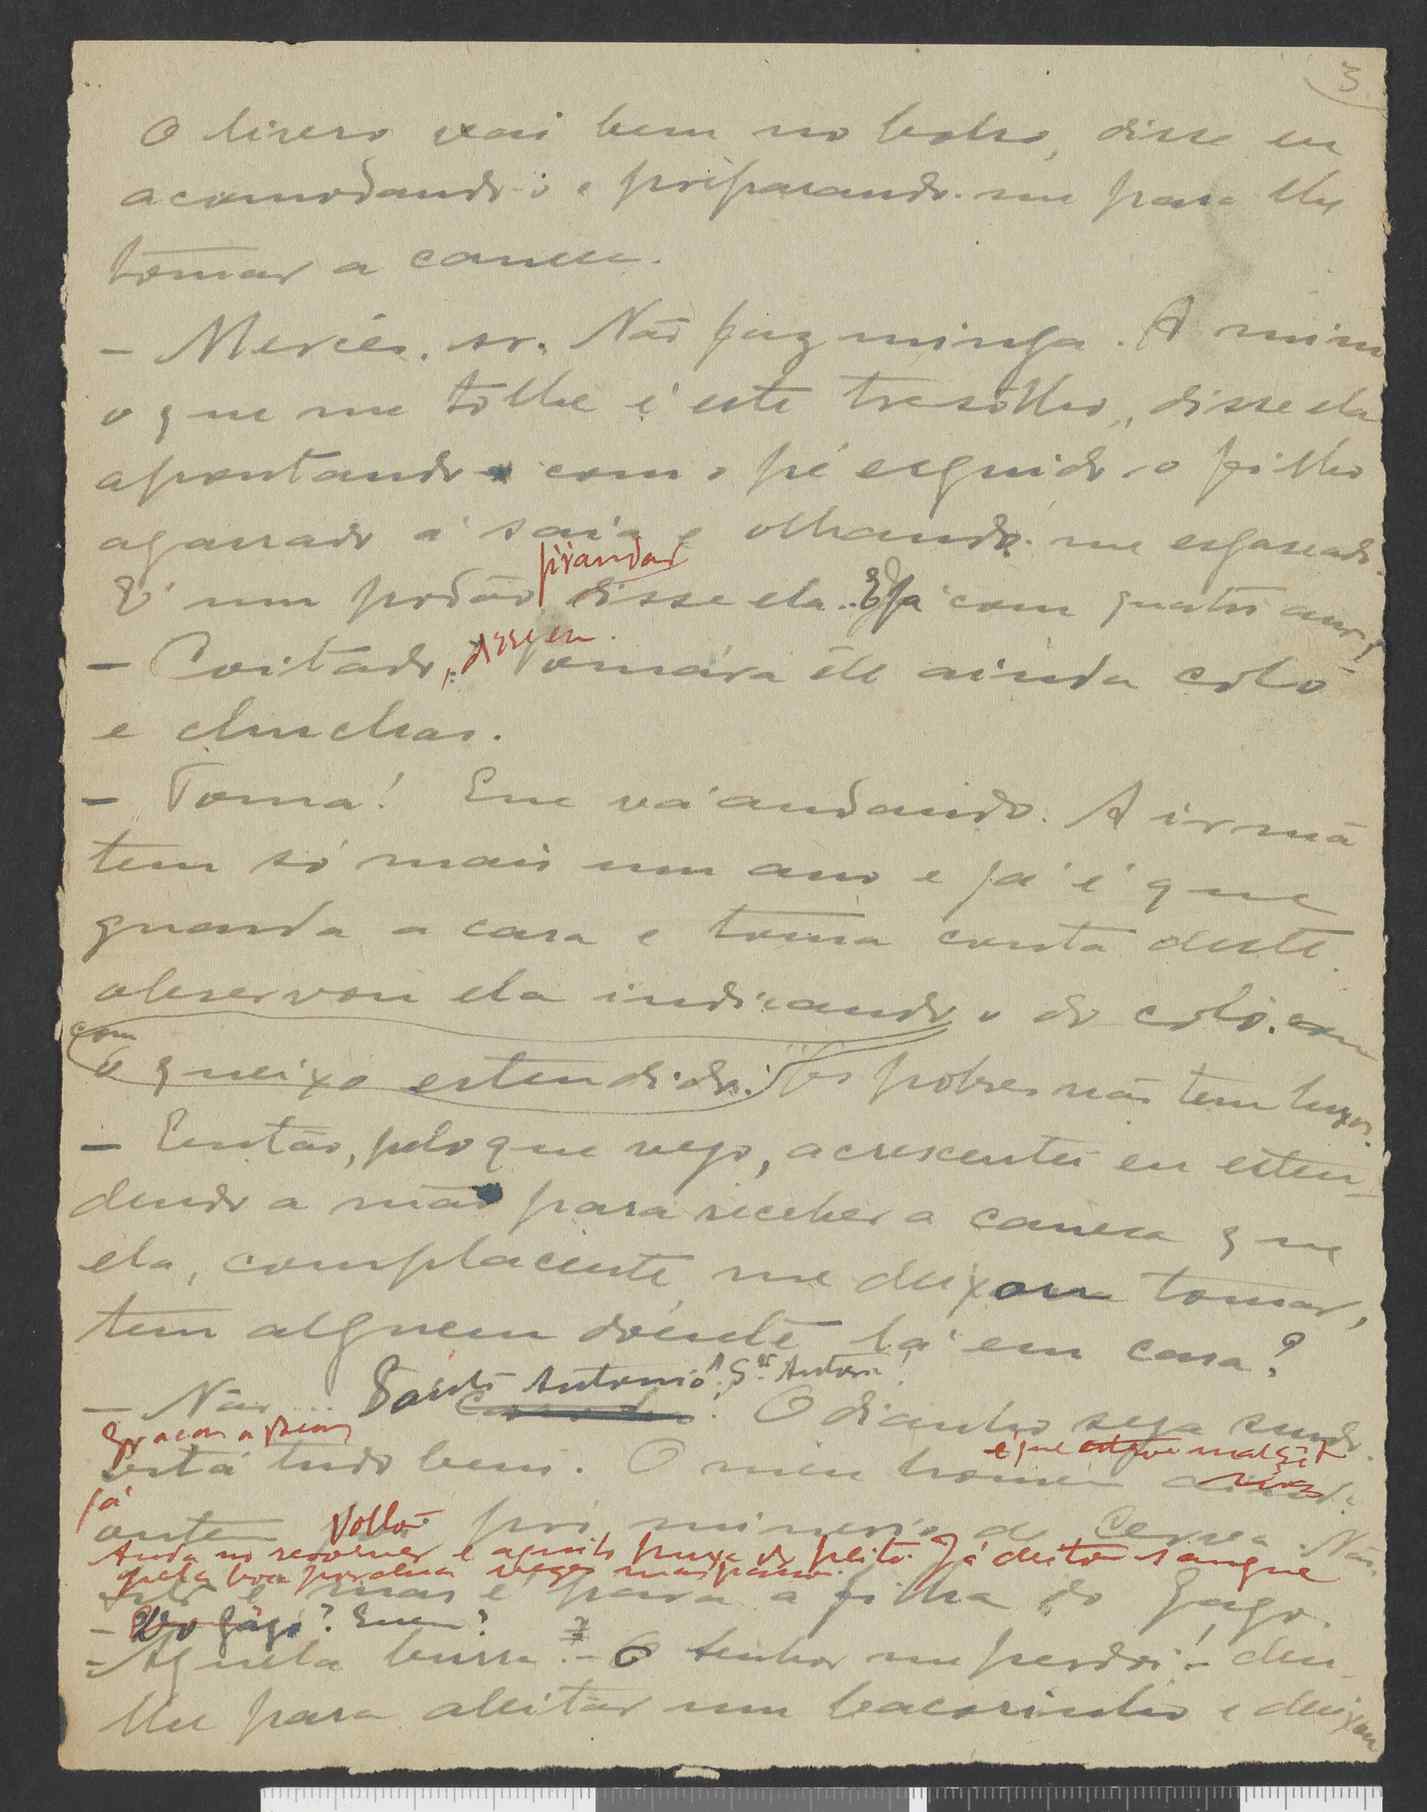 3
O livro vai bem no bolso, disse eu
acomodando-o e preparando-me para lhe
tomar a caneca.
- Mercês, sr. Não faz minga. A mim
o que me tolhe é este tresolho, disse ela
apontando com o pé erguido o filho
agarrado á saia e olhando-me esgaseado.
pirandar
É um podão disse ela. E já com quatro anos!
- Coitado, disse eu. Tomára êle ainda colo
e chuchas.
- Toma! Que vá andando. A irmã
tem só mais um ano e já é que
guarda a casa e toma conta deste.
observou ela indicando o do colo. com
com
o queixo estendido. Os pobres não tem luxos.
- Então, pelo que vejo, acrescentei eu esten-
dendo a mão para receber a caneca que
ela, complacente me deixou tomar,
tem alguem doente lá em casa?
- Não... Santo Antonio! Sto Antonio! O dianho seja surdo.
Graças a Deus
Está tudo bem. O meu homem
já
ontem voltou pró minerio de Cerva. Não
Anda no  e aquilo puxa do peito. Já deitou sangue
pela boca por duas vezes mas passa.
é mas é para a filha do Gago.
- Do Gago? Quem?
- Aquela burra! - O senhor me perdoi! - deu-
lhe para aleitar um bacorinho e deixou